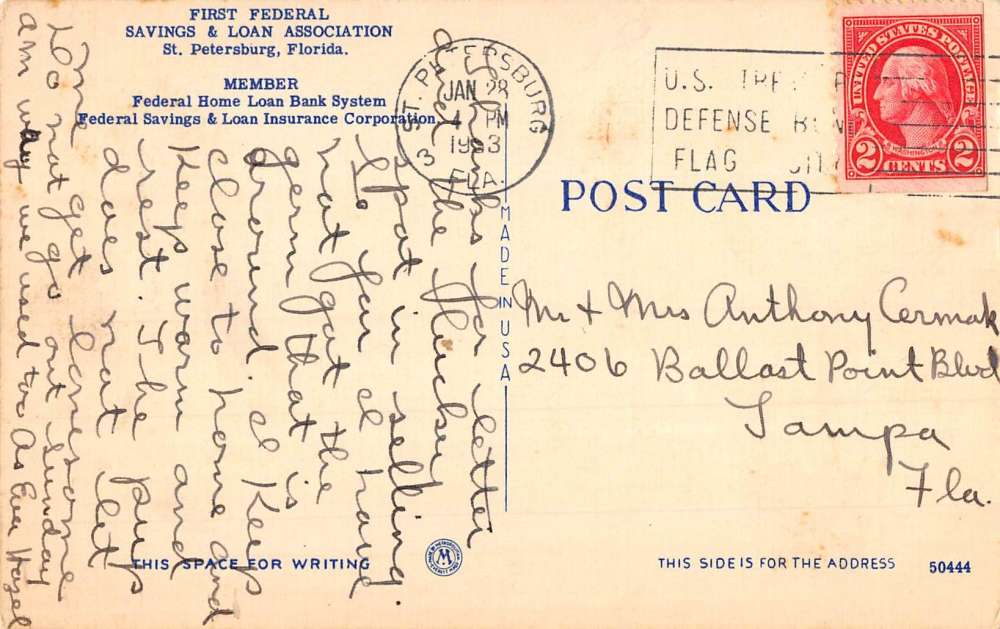 FIRST FEDERAL
SAVINGS & LOAN ASSOCIATION
St. Petersburg, Florida.
MEMBER
Federal Home Loan Bank System
Federal Savings & Loan Insurance Corporation
ST. PETERSBURG
JAN 28
4 PM
3 FLA.
U.S.
DEFENSE
FLAG
UNITED STATES POSTAGE
WASHINGTON
2 CENTS 2
POST CARD
MADE IN USA
Thanks for letter
feel the lucky
spot in selling.
So far I have
not got the
germ that is
around. I keep
close to home and
keep warm and
rest. The pups
does not let
me get lonesome
Do not go out Sunday
way we used too As Ever Hazel
Mr & Mrs Anthony Cermak
2406 Ballast Point Blvd
Tampa
Fla.
THIS SPACE FOR WRITING
M
THIS SIDE IS FOR THE ADDRESS
50444